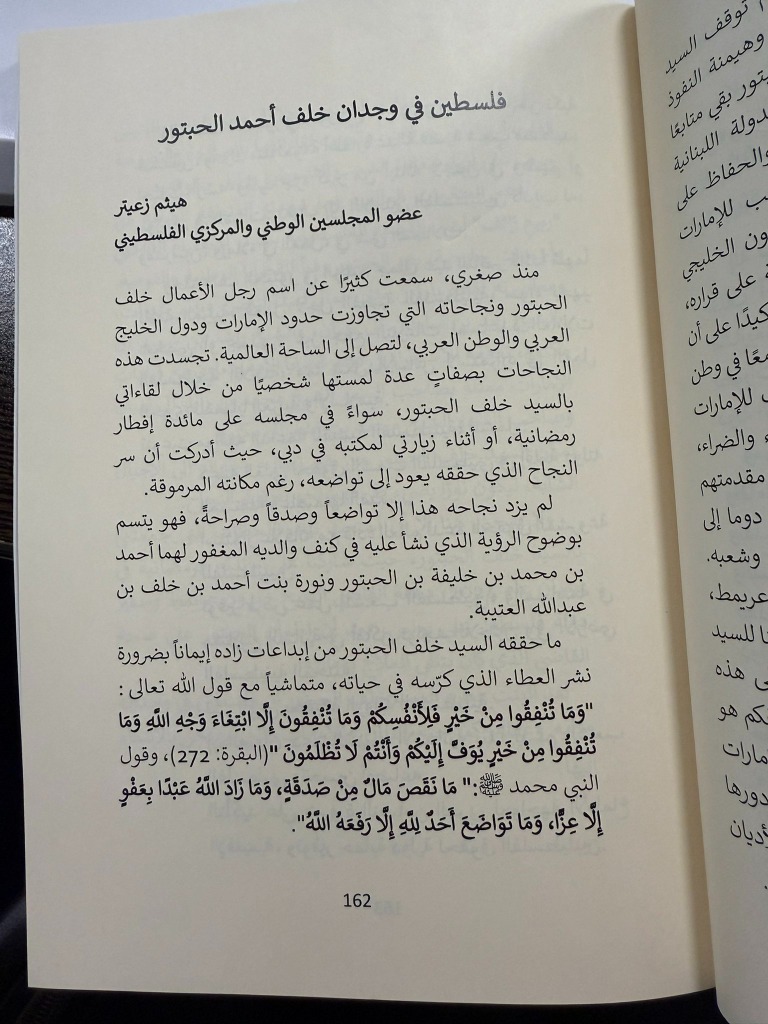 فلسطين في وجدان خلف أحمد الحبتور
هيثم زعيتر
عضو المجلسين الوطني والمركزي الفلسطيني
منذ صغري، سمعت كثيرًا عن اسم رجل الأعمال خلف
الحبتور ونجاحاته التي تجاوزت حدود الإمارات ودول الخليج
العربي والوطن العربي، لتصل إلى الساحة العالمية. تجسدت هذه
النجاحات بصفاتٍ عدة لمستها شخصيًا من خلال لقاءاتي
بالسيد خلف الحبتور، سواءً في مجلسه على مائدة إفطار
رمضانية، أو أثناء زيارتي لمكتبه في دبي، حيث أدركت أن سر
النجاح الذي حققه يعود إلى تواضعه، رغم مكانته المرموقة.
لم يزد نجاحه هذا إلا تواضعاً وصدقاً وصراحةً، فهو يتسم
بوضوح الرؤية الذي نشأ عليه في كنف والديه المغفور لهما أحمد
بن محمد بن خليفة بن الحبتور ونورة بنت أحمد بن خلف بن
عبدالله العتيبة.
ما حققه السيد خلف الحبتور من إبداعات زاده إيماناً بضرورة
نشر العطاء الذي كرّسه في حياته، متماشياً مع قول الله تعالى :
"وَمَا تُنْفِقُوا مِنْ خَيْرٍ فَلِأَنْفُسِكُمْ وَمَا تُنْفِقُونَ إِلَّا ابْتِغَاءَ وَجْهِ اللَّهِ وَمَا
تُنْفِقُوا مِنْ خَيْرٍ يُوَفَّ إِلَيْكُمْ وَأَنْتُمْ لَا تُظْلَمُونَ "(البقرة: 272)، وقول
النبي محمد ﷺ:" مَا نَقَصَ مَالٌ مِنْ صَدَقَةٍ، وَمَا زَادَ اللَّهُ عَبْدًا بِعَفْوٍ
إِلَّا عِزًّا، وَمَا تَوَاضَعَ أَحَدٌ لِلَّهِ إِلَّا رَفَعَهُ اللَّهُ".
162
توقف السيد
وهيمنة النفوذ
بقي متابعًا
الدولة اللبنانية
والحفاظ على
للإمارات
الخليجي
على قراره،
على أن
في وطن
للإمارات
والضراء،
مقدمتهم
دوما إلى
وشعبه.
عريمط،
للسيد
هذه
هو